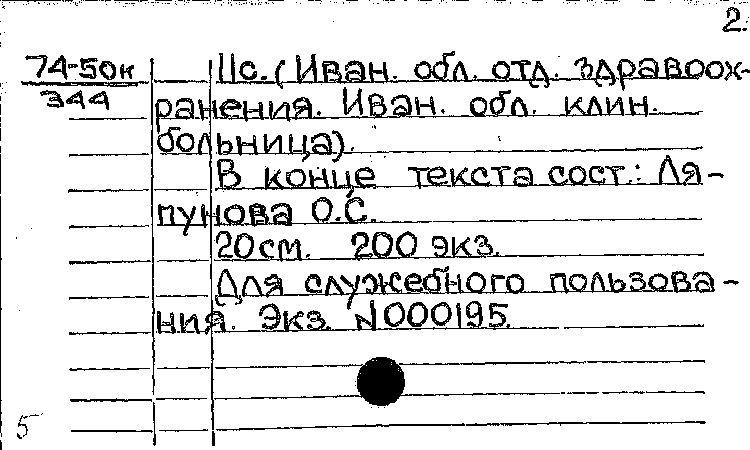 2.
74-5ок
344
11с. (Иван. обл. отд. здравоох-
ранения. Иван. обл. клин.
больница).
В конце текста сост.: Ля-
пунова О.С.
20см. 200 экз.
Для служебного пользова-
ния. Экз. №000195.
5